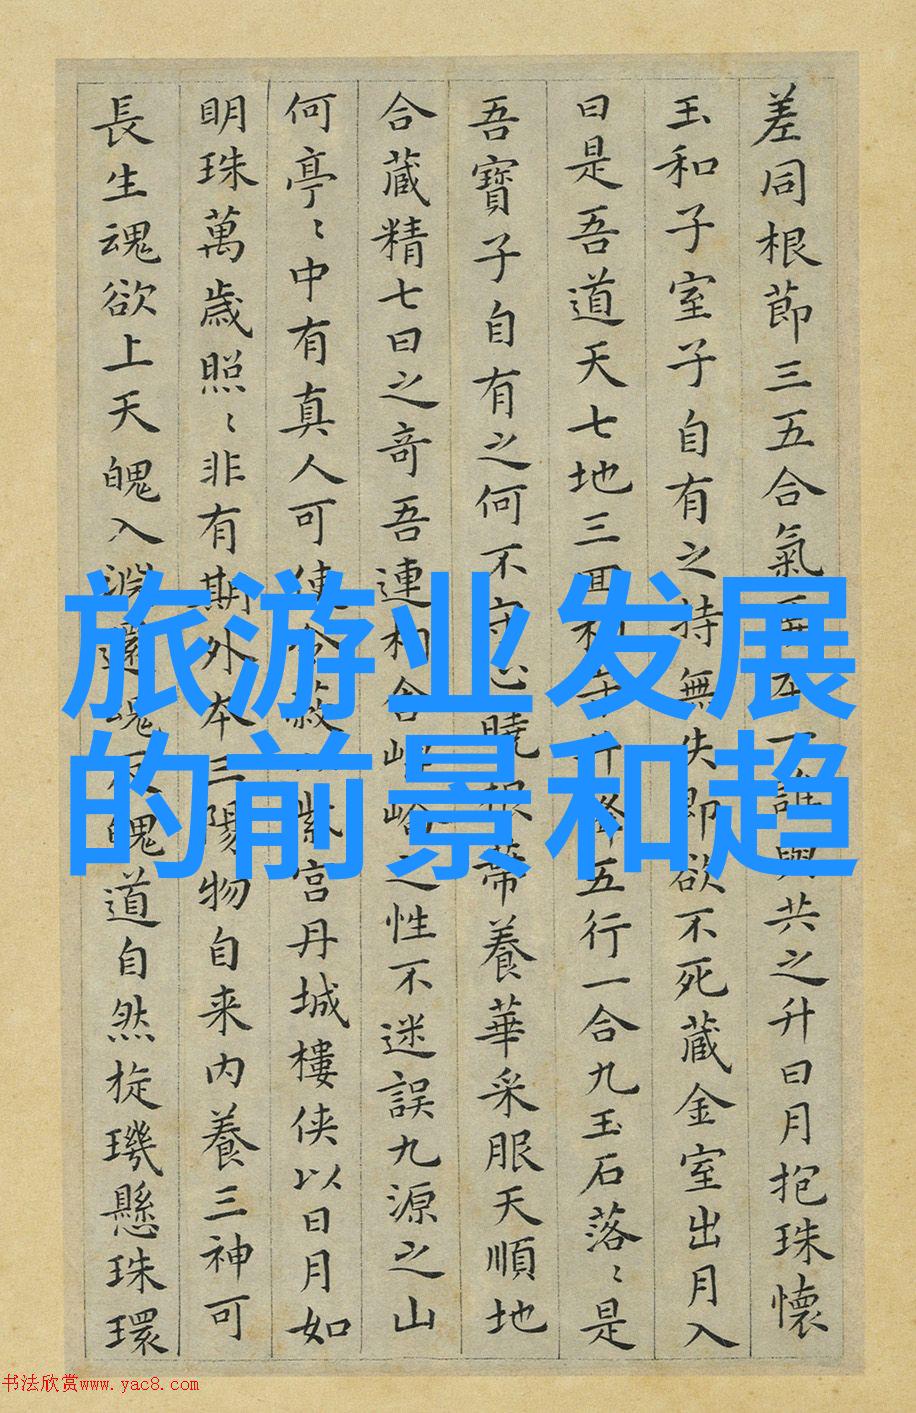 差同根節三五合氣
共之升日月抱珠懷
玉和子室子自有之持無失即欲不死藏金室出月入
日是吾道天七地三
五行一合九玉石落〻是
吾寶子自有之何不守心曉根蒂養華采服天順地
合藏精七日之奇吾連
之性不迷誤九源之山
何亭〻中有真人可使令
紫宮丹城樓俠以日月如
明珠萬歲照〻非有期外本三陽物自来内養三神可
長生魂欲上天魄入淵還魂反魄道自然旋璣懸珠環
旅游业发展
的前景和趋
书法欣赏www.yac8.com